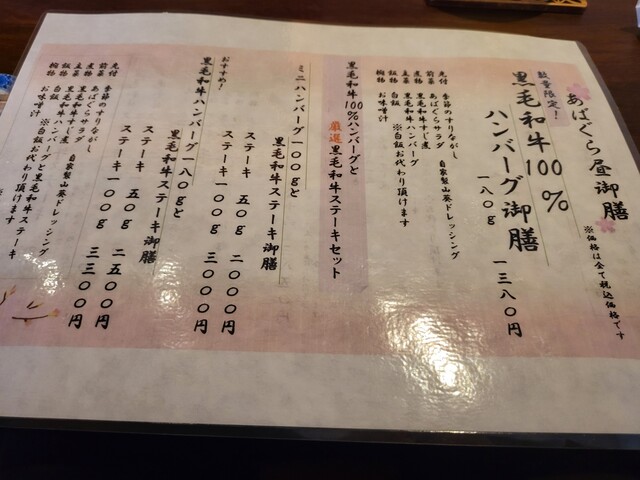 あばぐら昼御膳
※価格は全て税込価格です
数量限定！
黒毛和牛100%
ハンバーグ御膳
一八〇g 一三八〇円
先付 季節のすりながし
前菜 あばぐらサラダ 自家製山葵ドレッシング
煮物 黒毛和牛すじ煮
主菜 黒毛和牛ハンバーグ
飯物 白飯 ※白飯お代わり頂けます
椀物 お味噌汁
黒毛和牛100%ハンバーグと
厳選黒毛和牛ステーキセット
ミニハンバーグ一〇〇gと
黒毛和牛ステーキ御膳
ステーキ 五〇g 二〇〇〇円
ステーキ一〇〇g 三〇〇〇円
おすすめ！
黒毛和牛ハンバーグ一八〇gと
黒毛和牛ステーキ御膳
ステーキ 五〇g 二五〇〇円
ステーキ一〇〇g 三三〇〇円
先付 季節のすりながし
前菜 あばぐらサラダ 自家製山葵ドレッシング
煮物 黒毛和牛すじ煮
主菜 黒毛和牛ハンバーグと黒毛和牛ステーキ
飯物 白飯 ※白飯お代わり頂けます
椀物 お味噌汁
※